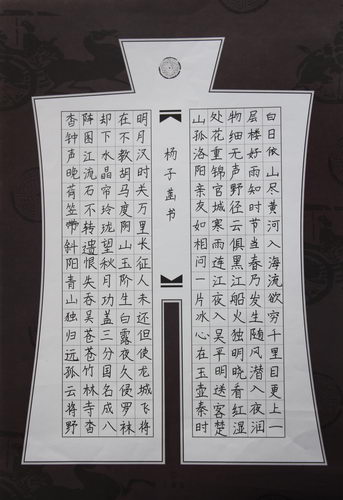 白日依山尽黄河入海流欲穷千里目更上一
层楼好雨知时节当春乃发生随风潜入夜润
物细无声野径云俱黑江船火独明晓看红湿
处花重锦官城寒雨连江夜入吴平明送客楚
山孤洛阳亲友如相问一片冰心在玉壶秦时
杨子菡书
明月汉时关万里长征人未还但使龙城飞将
在不教胡马度阴山玉阶生白露夜久侵罗袜
却下水晶帘玲珑望秋月功盖三分国名成八
阵图江流石不转遗恨失吞吴苍苍竹林寺杳
杳钟声晚荷笠带斜阳青山独归远孤云将野